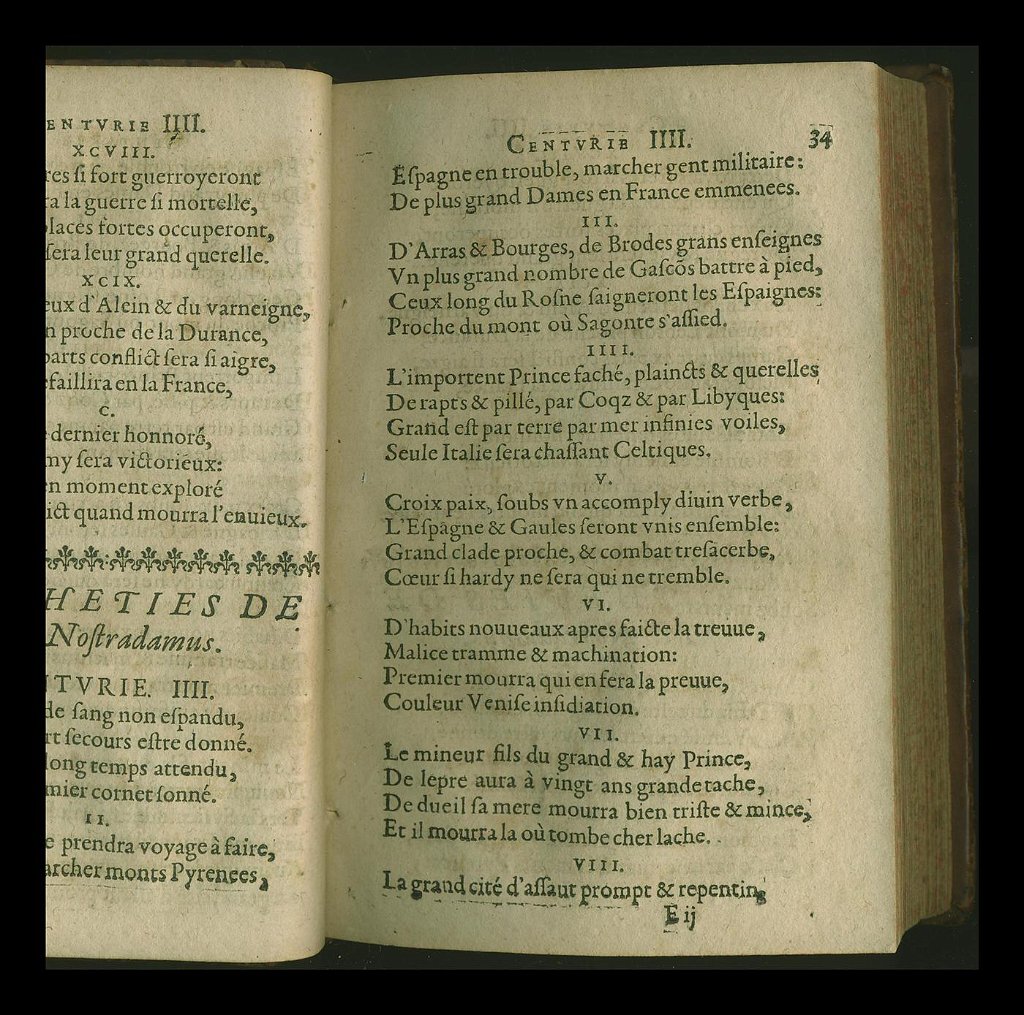 ENTVRIE IIII.
XCVIII.
res ſi fort guerroyeront
ra la guerre ſi mortelle,
laces fortes occuperont,
ſera leur grand querelle.
XCIX.
eux d'Alein & du varneigne,
n proche de la Durance,
parts conflict ſera ſi aigre,
efaillira en la France,
C.
dernier honnoré,
my ſera victorieux:
en moment exploré
ict quand mourra l'enuieux.
HETIES DE
Noſtradamus.
NTVRIE. IIII.
de ſang non eſpandu,
rt ſecours eſtre donné.
long temps attendu,
mier cornet ſonné.
II.
e prendra voyage à faire,
archer monts Pyrenees,
CENTVRIE IIII. 34
Eſpagne en trouble, marcher gent militaire:
De plus grand Dames en France emmenees.
III.
D'Arras & Bourges, de Brodes grans enſeignes
Vn plus grand nombre de Gaſcõs battre à pied,
Ceux long du Roſne ſaigneront les Eſpaignes:
Proche du mont où Sagonte s'aſſied.
IIII.
L'importent Prince faché, plaincts & querelles
De rapts & pillé, par Coqz & par Libyques:
Grand eſt par terre par mer infinies voiles,
Seule Italie ſera chaſſant Celtiques.
V.
Croix paix, ſoubs vn accomply diuin verbe,
L'Eſpagne & Gaules ſeront vnis enſemble:
Grand clade proche, & combat treſacerbe,
Cœur ſi hardy ne ſera qui ne tremble.
VI.
D'habits nouueaux apres faicte la treuue,
Malice tramme & machination:
Premier mourra qui en fera la preuue,
Couleur Veniſe inſidiation.
VII.
Le mineur fils du grand & hay Prince,
De lepre aura à vingt ans grande tache,
De dueil ſa mere mourra bien triſte & mince,
Et il mourra la où tombe cher lache.
VIII.
La grand cité d'aſſaut prompt & repentin
E ij